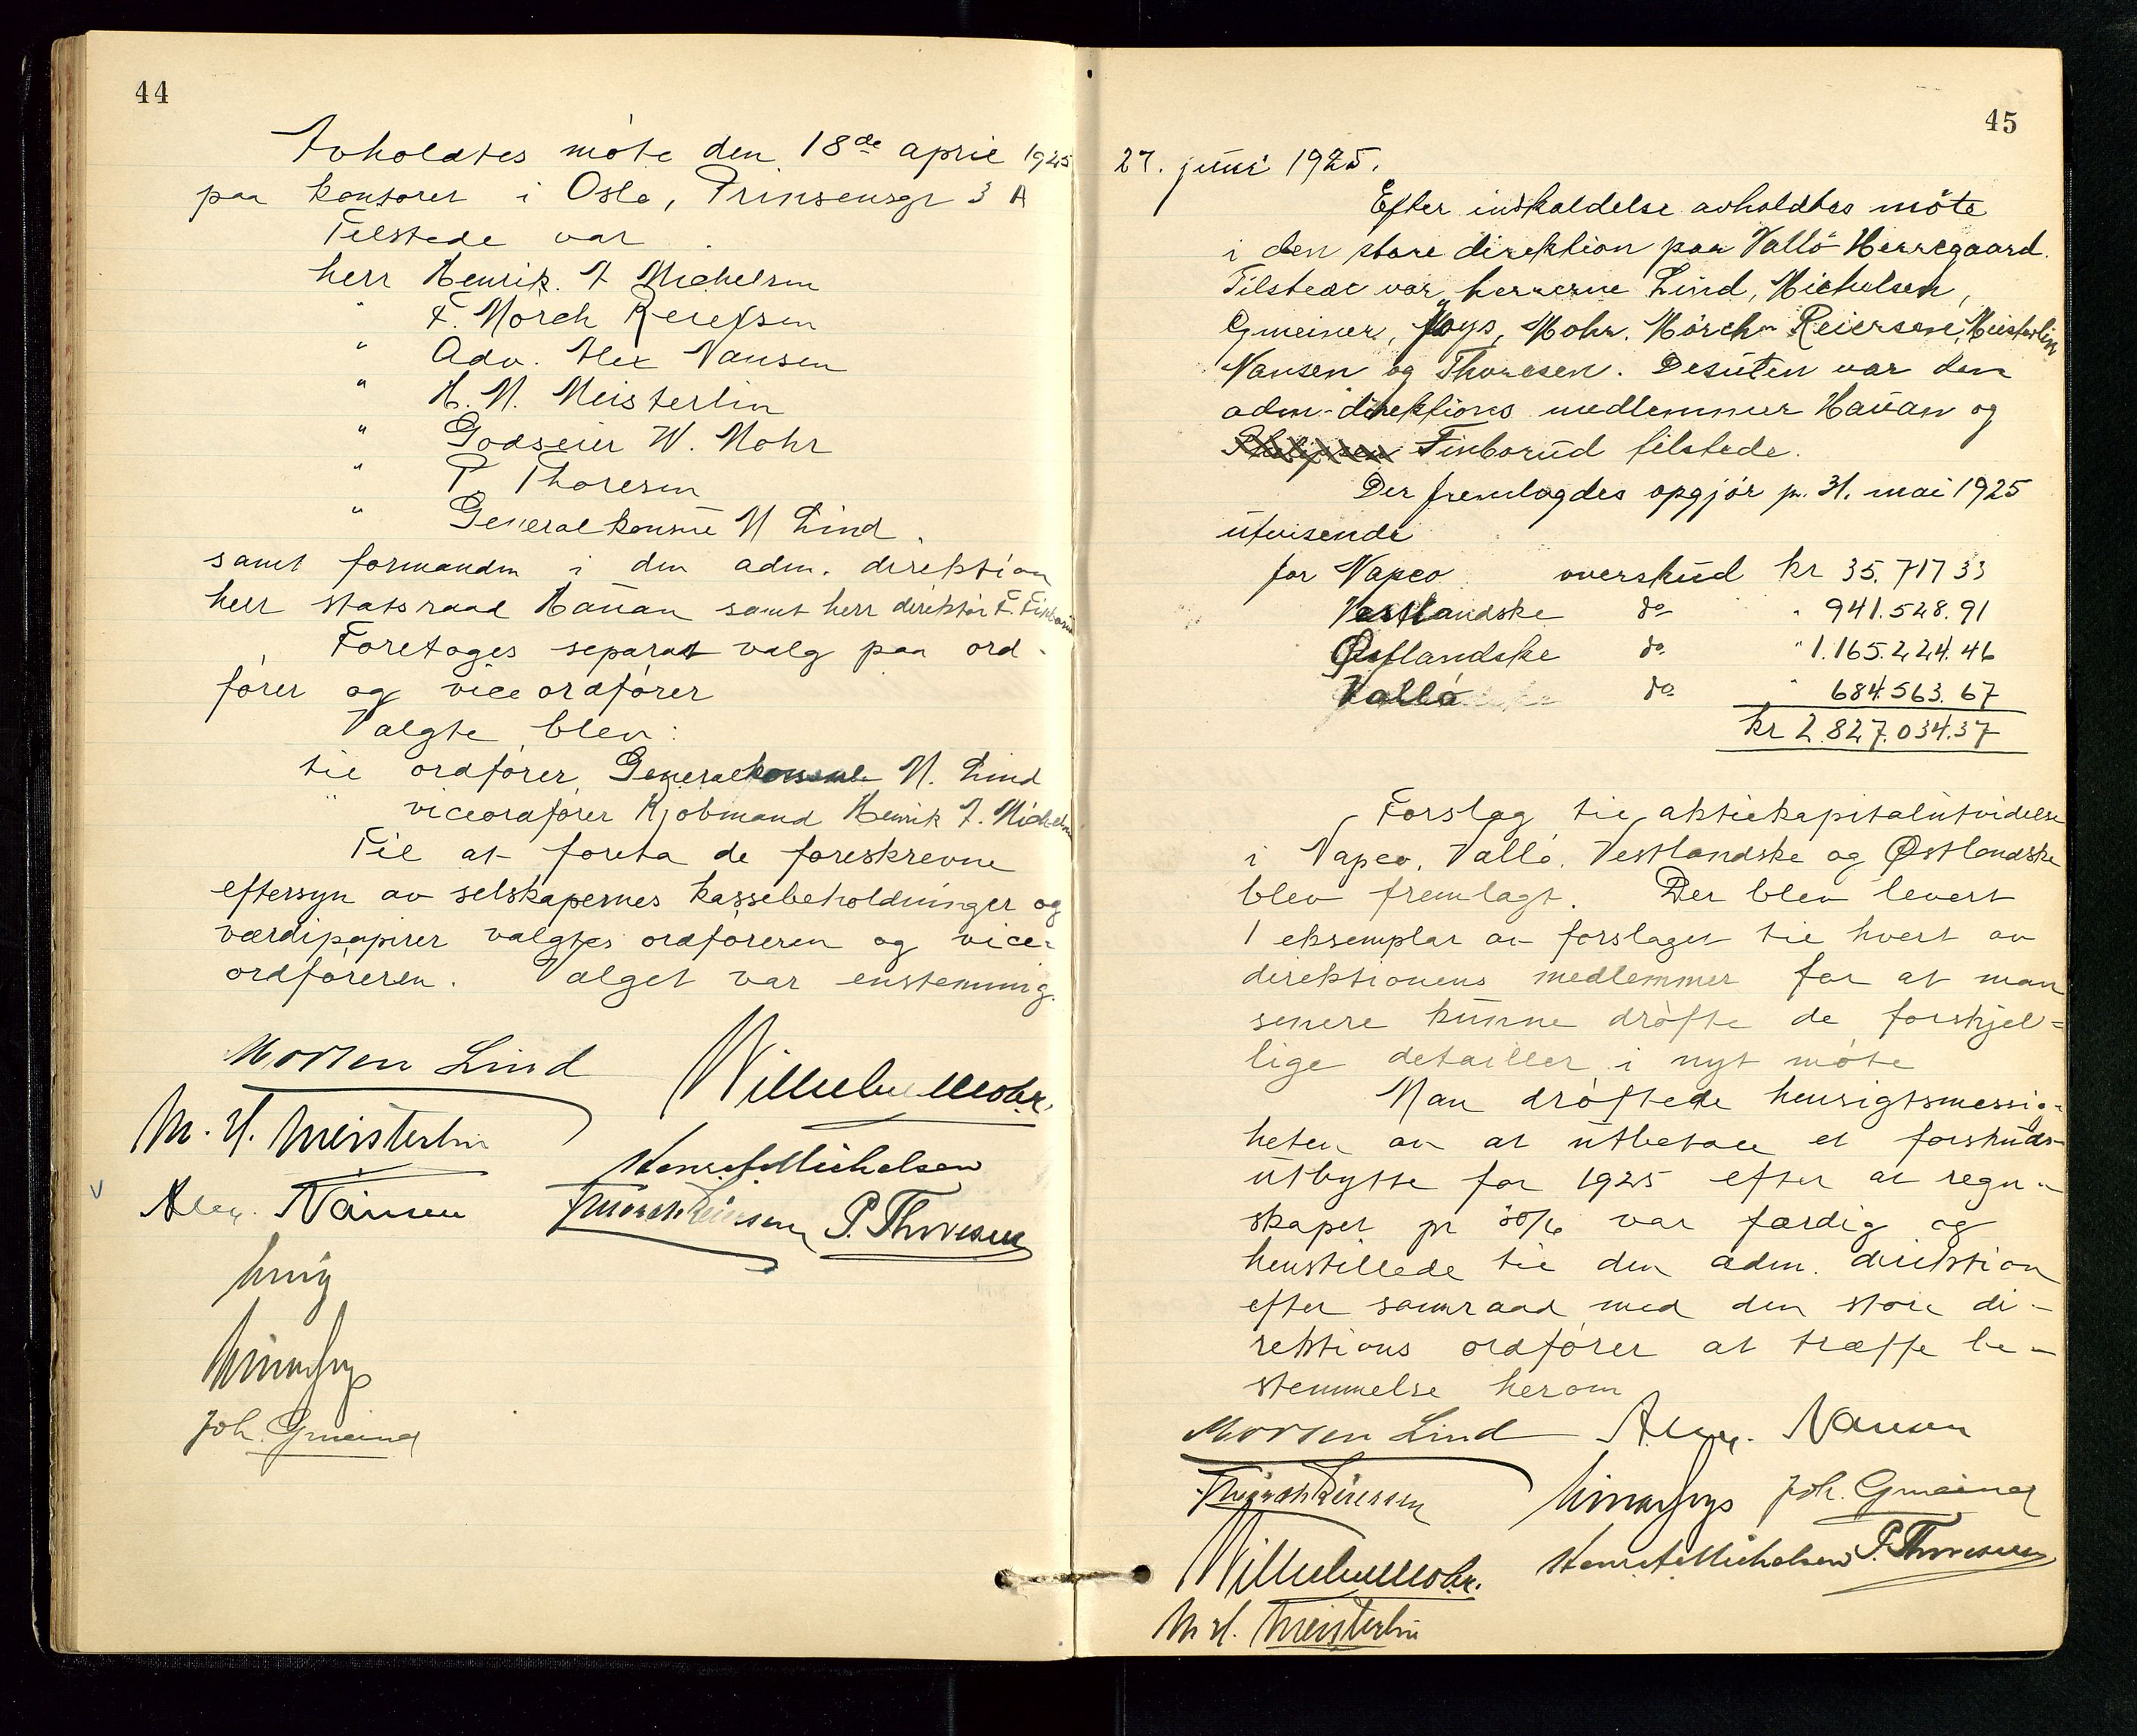 44
Avholdtes möte den 18de april 1925
paa kontoret i Oslo, Prinsensgt 3 A
Tilstede var
herr Henrik. F Michelsen
" F. Mörch Reiersen
" Adv. Alex Nansen
" H. M. Meisterlin
" Godseier W. Mohr
" P. Thoresen
" Generalkonsul M Lind.
samt formanden i den adm. direktion
herr statsraad Hauan samt herr direktör F. Finborud
Foretoges separat valg paa ord-
förer og viceordförer
Valgte blev:
til ordförer Generalkonsul M. Lind
" viceordförer Kjöbmand Henrik F. Michelsen
Til at foreta de foreskrevne
eftersyn av selskapernes kassebeholdninger og
værdipapirer valgtes ordföreren og vice-
ordföreren. Valget var enstemmig.
Morten Lind Wilhelm Mohr.
M. H. Meisterlin
Henrik F. Michelsen
Alex. Nansen F Mörch Reiersen P. Thoresen
Joh. Gmeiner
45
27. juni 1925.
Efter indkaldelse avholdtes möte
i den store direktion paa Vallö Herregaard.
Tilstede var herrerne Lind, Michelsen,
Gmeiner, Foys, Mohr. Mörch Reiersen, Meisterlin
Nansen og Thoresen. Desuten var den
adm. direktions medlemmer Hauan og
Finborud tilstede.
Der fremlagdes opgjör pr. 31. mai 1925
utvisende
for Vapco overskud kr 35.717 33
Vestlandske do " 941.528.91
Østlandske do " 1.165.224.46
Vallö do " 684.563.67
kr 2.827.034.37
Forslag til aktiekapitalutvidelse
i Vapco, Vallö, Vestlandske og Østlandske
blev fremlagt. Der blev levert
1 eksemplar av forslaget til hvert av
direktionens medlemmer for at man
senere kunne dröfte de forskjel=
lige detailler i nyt möte
Man dröftede hensigtsmessig-
heten av at utbetale et forskuds-
utbytte for 1925 efter at regn-
skapet pr 30/6 var færdig og
henstillede til den adm. direktion
efter samraad med den store di-
rektions ordförer at træffe be-
stemmelse herom
Morten Lind Alex. Nansen
F Mörch Reiersen Joh. Gmeiner
Wilhelm Mohr. Henrik F Michelsen P. Thoresen
M H. Meisterlin